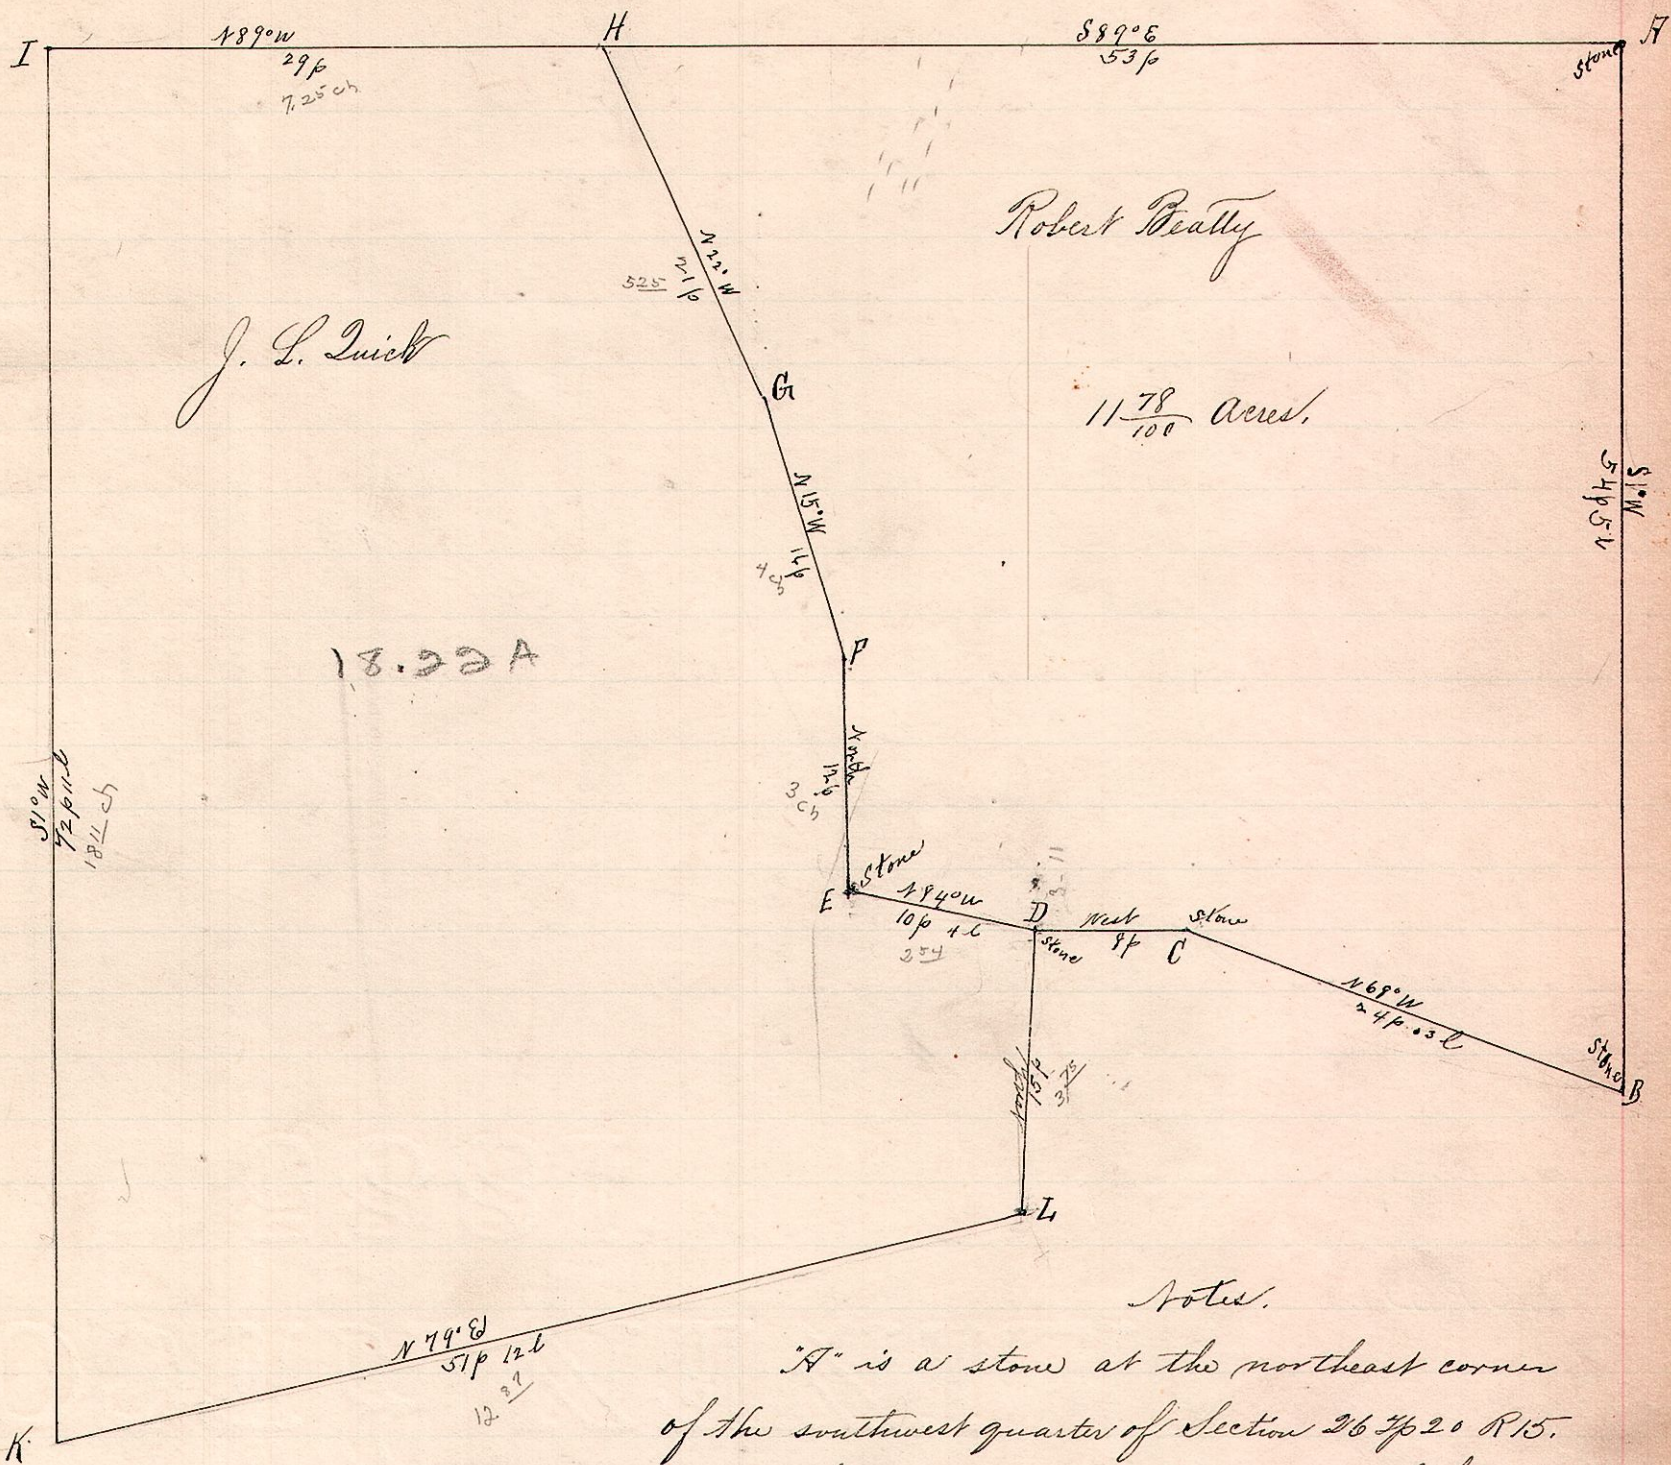 I
N89°W
29p
7.25 ch
H
S89°E
53p
A
Stone
Robert Beatty
11 78/100 Acres.
S1°W
54p 5l
J. L. Quick
N22°W
21p
525
G
N15°W
16p
4 ch
F
18.22 A
North
12p
3 ch
S1°W
72p 11l
18 11 ch
E
Stone
N84°W
10p 4l
2 54
D
Stone
West
8p
C
Stone
N69°W
24p .3l
Stone
B
North
15p
3 75
L
N79°E
51p 12l
12 87
K
Notes.
"A" is a stone at the northeast corner
of the southwest quarter of Section 26 Tp 20 R15.